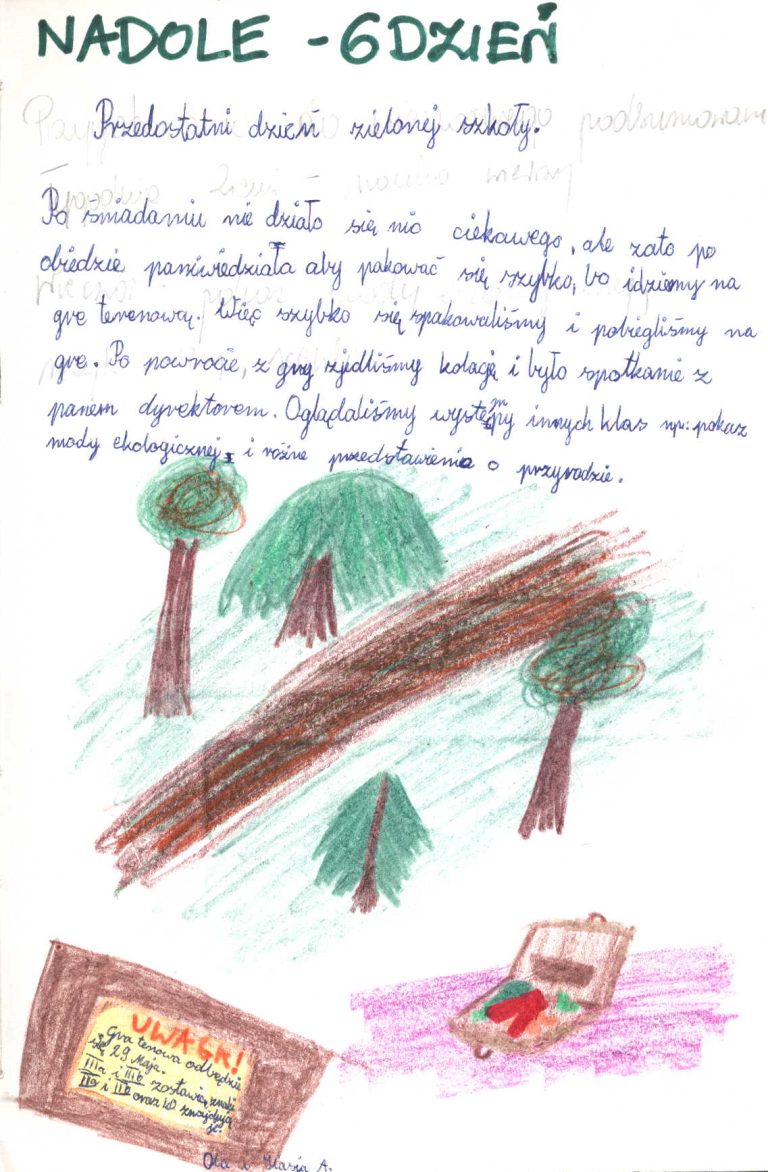 NADOLE - 6 DZIEŃ
Przedostatni dzień zielonej szkoły.
Po śniadaniu nie działo się nic ciekawego, ale zato po
obiedzie paniwiedziała aby pakować się szybko, bo idziemy na
grę terenową. Więc szybko się spakowaliśmy i pobiegliśmy na
grę. Po powrocie, z gry zjedliśmy kolację i było spotkanie z
panem dyrektorem. Oglądaliśmy występy innych klas np: pokaz
mody ekologicznej, i różne przedstawienia o przyrodzie.
UWAGA!
Gra tenowa odbędzie
się 29 Maja.
IIIa i IIIb zostawią znaki
IIa i oraz znajdują
Ola i Kasia A.